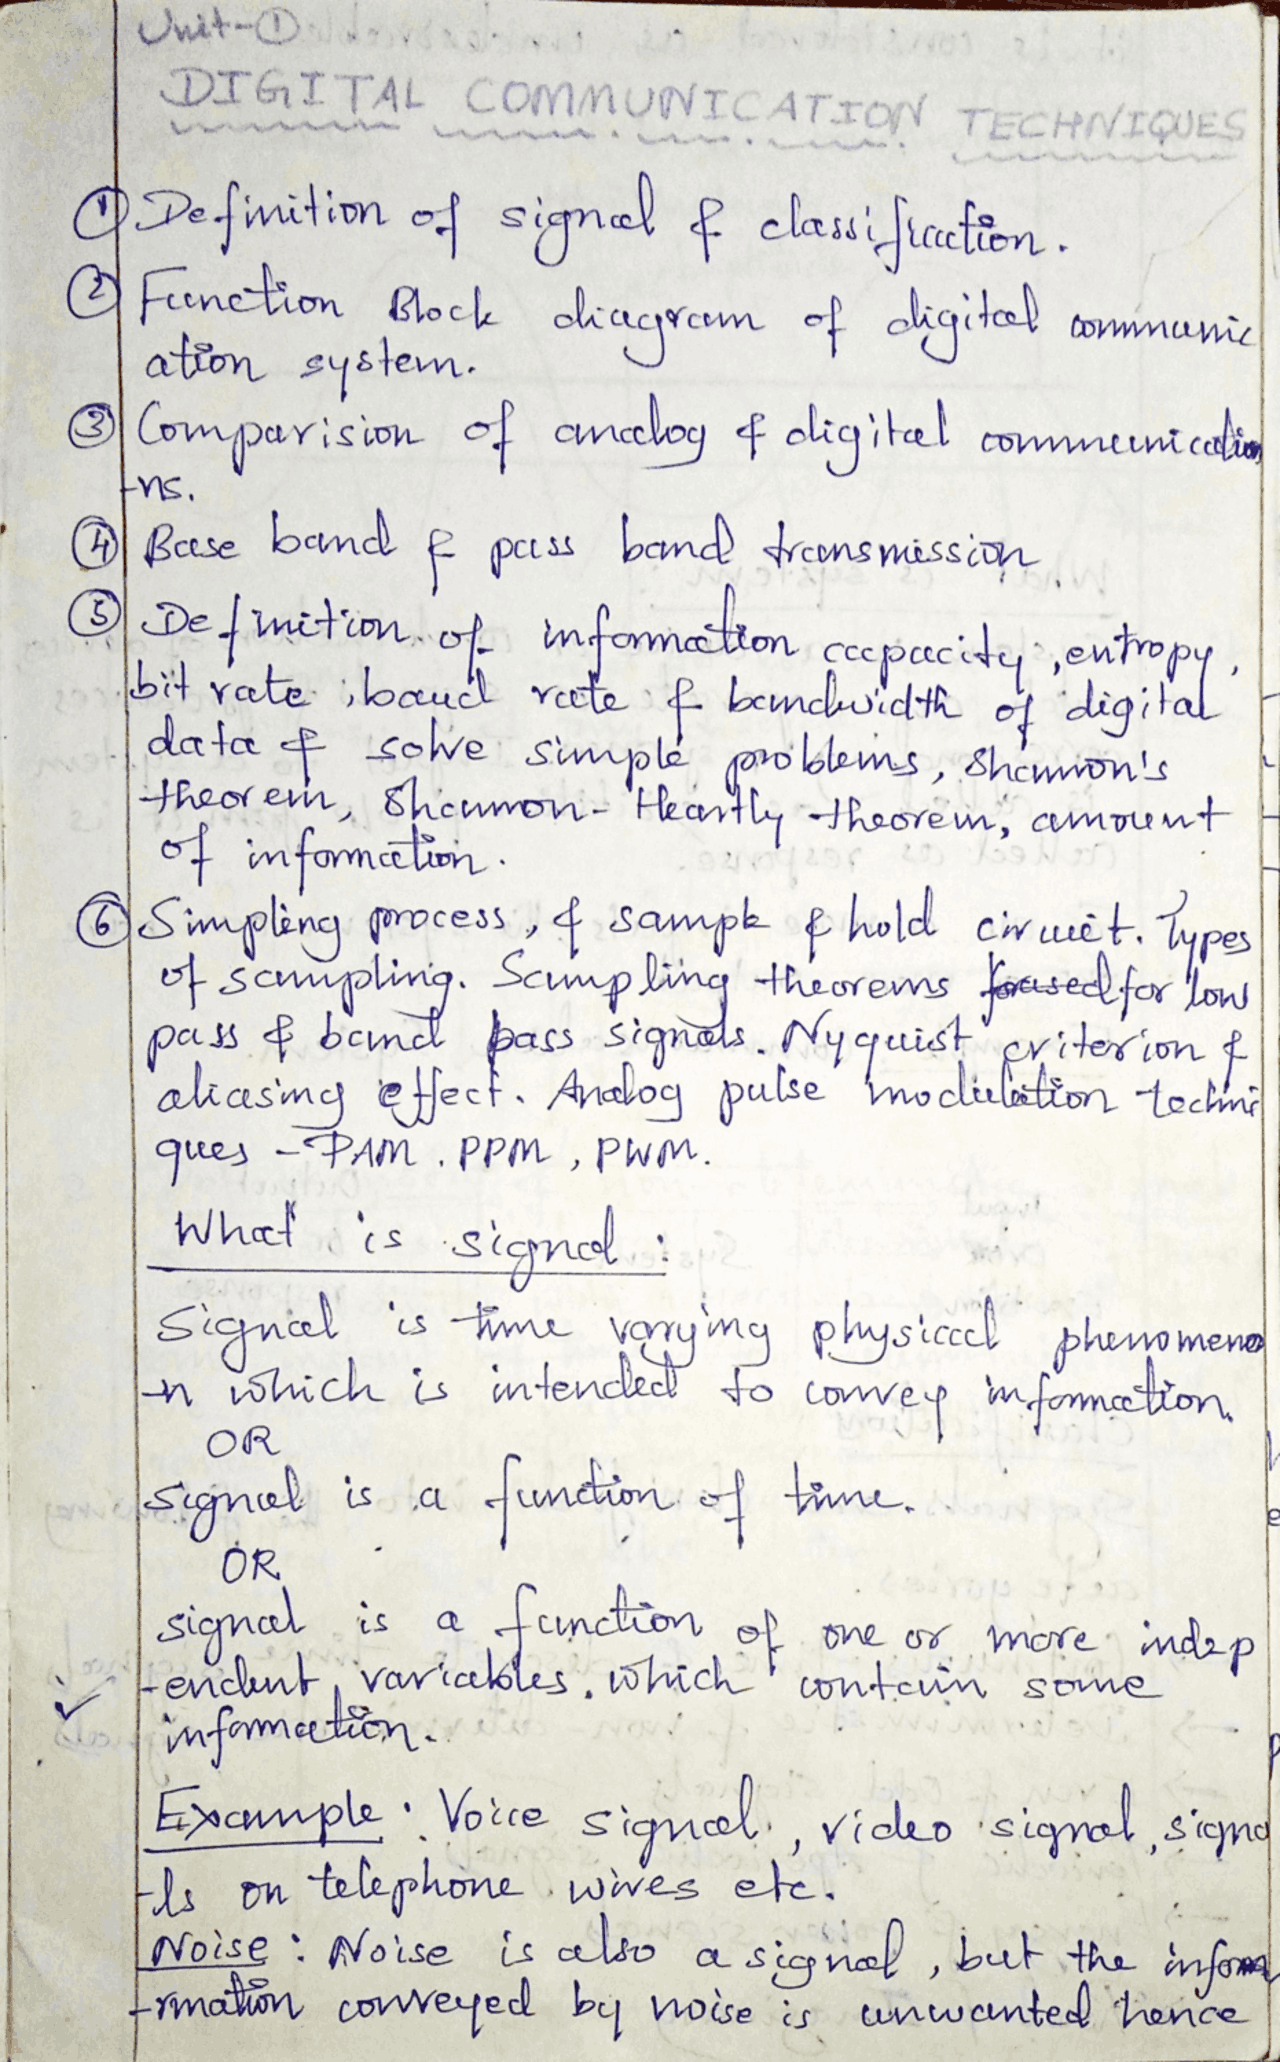 Unit-①
DIGITAL COMMUNICATION TECHNIQUES
① Definition of signal & classification.
② Function Block diagram of digital communic
ation system.
③ Comparision of analog & digital communication
-ns.
④ Base band & pass band transmission
⑤ Definition of information capacity, entropy,
bit rate, baud rate & bandwidth of digital
data & solve simple problems, Shannon's
theorem, Shannon-Heartly theorem, amount
of information.
⑥ Simpling process, & sample & hold circuit. Types
of sampling. Sampling theorems for low
pass & band pass signals. Nyquist criterion &
aliasing effect. Analog pulse modulation techni
ques - PAM, PPM, PWM.
What is signal:
Signal is time varying physical phenomeno
-n which is intended to convey information.
OR
signal is a function of time.
OR
signal is a function of one or more indep
-endent variables. which contain some
information.
Example: Voice signal, video signal, signa
-ls on telephone wires etc.
Noise: Noise is also a signal, but the infor
-rmation conveyed by noise is unwanted hence